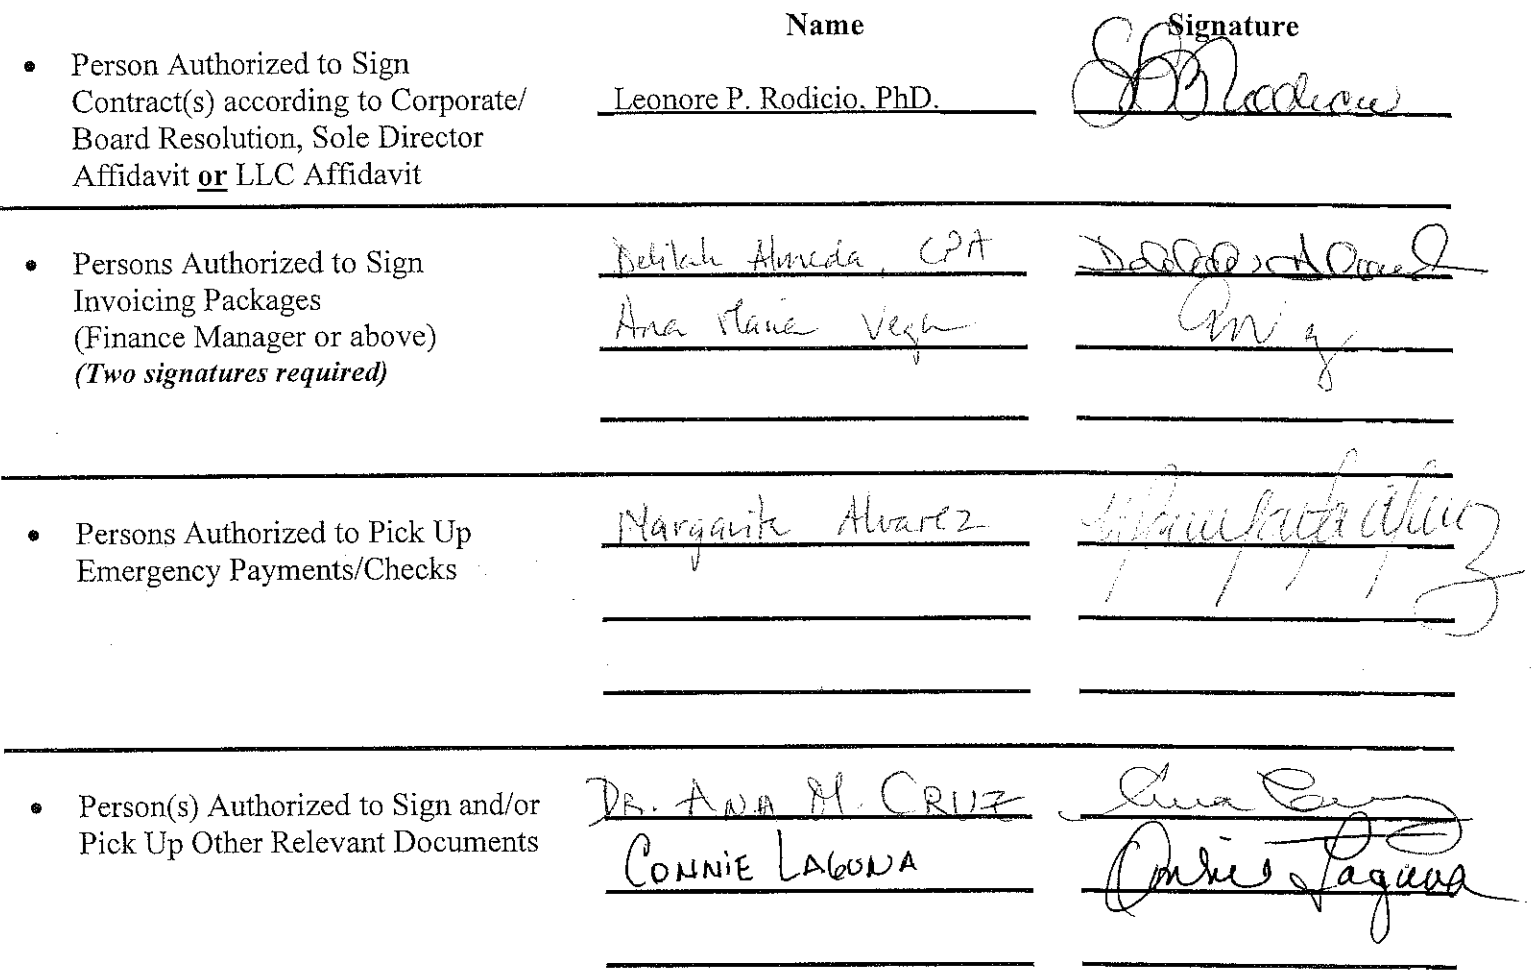 Name Signature
• Person Authorized to Sign
Contract(s) according to Corporate/
Leonore P. Rodicio, PhD.
Board Resolution, Sole Director
Affidavit or LLC Affidavit
• Persons Authorized to Sign
Invoicing Packages
(Finance Manager or above)
(Two signatures required)
Delilah Almeda, CPA
Ana Maria Vega
• Persons Authorized to Pick Up
Emergency Payments/Checks
Margarita Alvarez
• Person(s) Authorized to Sign and/or
Pick Up Other Relevant Documents
DR. ANA M. CRUZ
CONNIE LAGUNA Connie Laguna